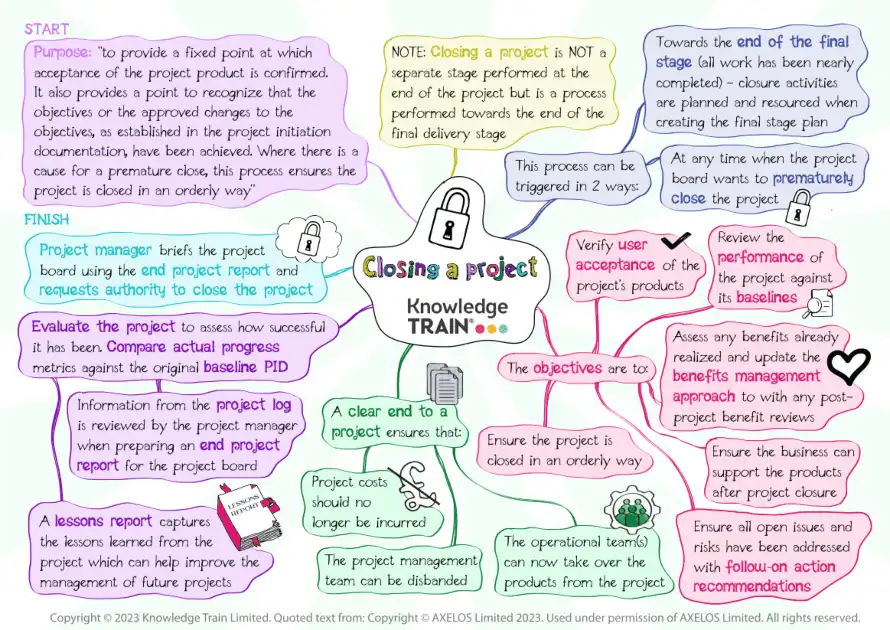 START
Purpose: "to provide a fixed point at which
acceptance of the project product is confirmed.
It also provides a point to recognize that the
objectives or the approved changes to the
objectives, as established in the project initiation
documentation, have been achieved. Where there is a
cause for a premature close, this process ensures the
project is closed in an orderly way"
NOTE: Closing a project is NOT a
separate stage performed at the
end of the project but is a process
performed towards the end of the
final delivery stage
Towards the end of the final
stage (all work has been nearly
completed) - closure activities
are planned and resourced when
creating the final stage plan
This process can be
triggered in 2 ways:
At any time when the project
board wants to prematurely
close the project
FINISH
Project manager briefs the project
board using the end project report and
requests authority to close the project
Closing a project
Knowledge
TRAIN®
Verify user
acceptance of the
project's products
Review the
performance of
the project against
its baselines
Evaluate the project to assess how successful
it has been. Compare actual progress
metrics against the original baseline PID
The objectives are to:
Assess any benefits already
realized and update the
benefits management
approach to with any post-
project benefit reviews
Information from the project log
is reviewed by the project manager
when preparing an end project
report for the project board
A clear end to a
project ensures that:
Ensure the project is
closed in an orderly way
Ensure the business can
support the products
after project closure
Project costs
should no
longer be incurred
LESSONS
REPORT
A lessons report captures
the lessons learned from the
project which can help improve the
management of future projects
The project management
team can be disbanded
The operational team(s)
can now take over the
products from the project
Ensure all open issues and
risks have been addressed
with follow-on action
recommendations
Copyright © 2023 Knowledge Train Limited. Quoted text from: Copyright © AXELOS Limited 2023. Used under permission of AXELOS Limited. All rights reserved.